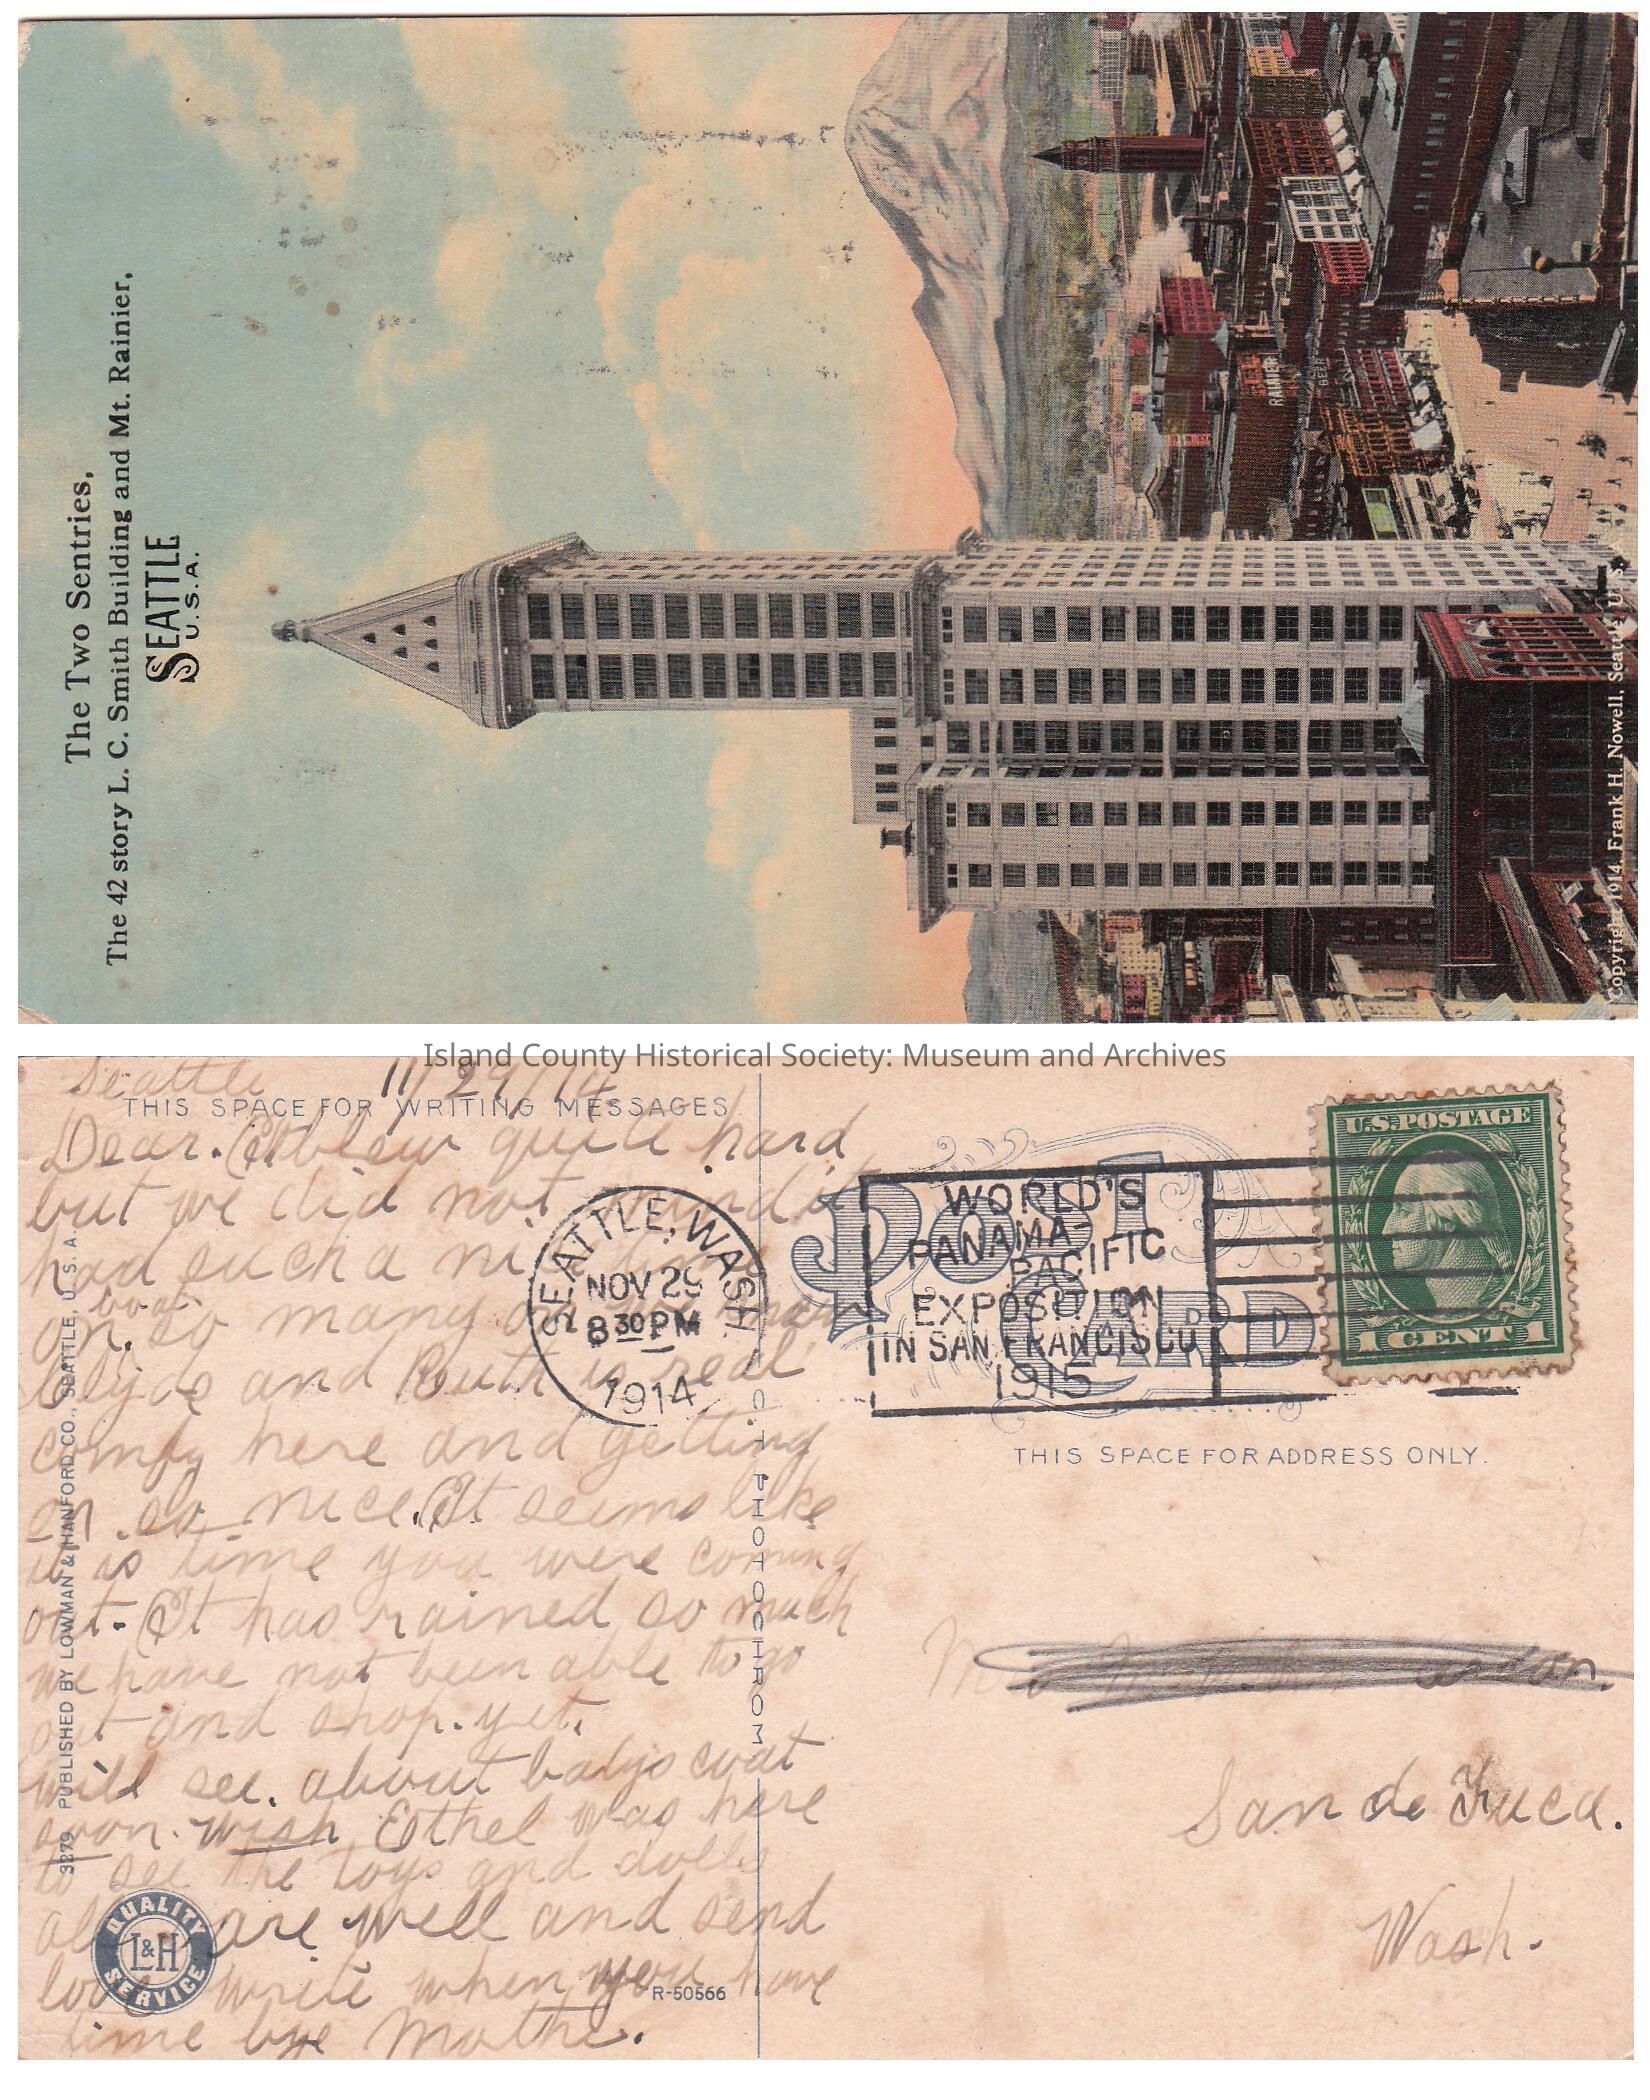 The Two Sentries,
The 42 story L. C. Smith Building and Mt. Rainier,
SEATTLE
U.S.A.
RAINIER
BEER
Copyright 1914, Frank H. Nowell, Seattle, U.S.
Island County Historical Society: Museum and Archives
Seattle 11/29/14
THIS SPACE FOR WRITING MESSAGES
Dear. It blew quite hard
but we did not mind it
had such a nice
boat
on. so many
Clyde and Ruth is real
comfy here and getting
on so nice. It seems like
it is time you were coming
out. It has rained so much
we have not been able to go
out and shop. yet.
will see. about babys coat
soon. wish Ethel was here
to see the toys and dolls
all are well and send
love write when you have
time bye Mother.
3279 PUBLISHED BY LOWMAN & HANFORD CO., SEATTLE, U.S.A.
QUALITY
L&H
SERVICE
R-50566
PHOTOCHROM
SEATTLE, WASH.
NOV 29
8 30 PM
1914
WORLD'S
PANAMA-
PACIFIC
EXPOSITION
IN SAN FRANCISCO
1915
POST
CARD
U.S. POSTAGE
1 CENT 1
THIS SPACE FOR ADDRESS ONLY.
San de Fuca.
Wash.